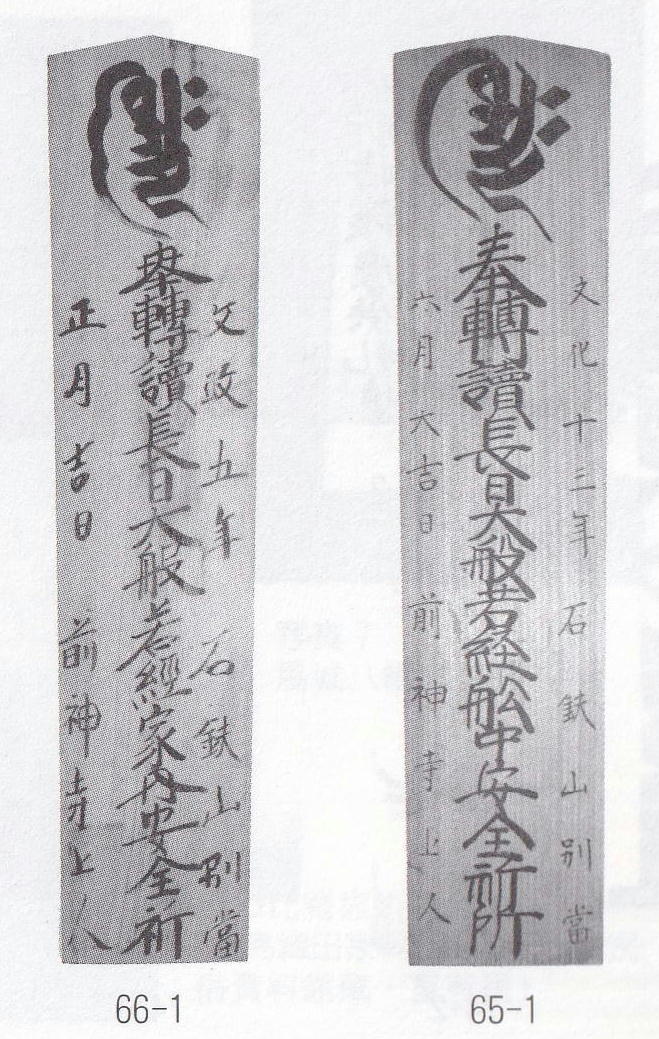 文化十三年 石鈇山別當
奉轉讀長日大般若経舩中安全祈所
六月大吉日 前神寺上人
65-1
文政五年 石鈇山別當
奉轉讀長日大般若經家内安全祈
正月吉日 前神寺上人
66-1